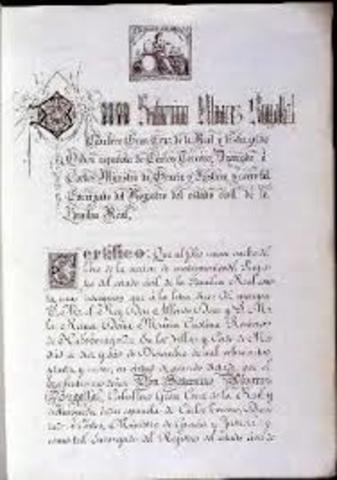 Don Saturnino Alvarez Bugallal
Caballero Gran Cruz de la Real y distinguida
Orden española de Carlos Tercero, Diputado á
Cortes, Ministro de Gracia y Justicia y como tal
Encargado del Registro del estado civil de la
Familia Real,
Certifico: Que al folio
libro de la sección de matrimonios del Regis-
tro del estado civil de la Familia Real
una que á la letra dice: Al margen
Rey Don Alfonso Doce y S. M.
la Reina Doña María Cristina
de Habsburgo. En la Villa y Corte de Ma-
drid á diez y de Diciembre de mil ochocientos
y nueve, en virtud de
señor Don Saturnino Alvarez
Bugallal, Caballero Gran Cruz de la Real y
distinguida Orden española de Carlos Tercero, Dipu-
tado á Cortes, Ministro de Gracia y Justicia y
como tal Encargado del Registro del estado civil de